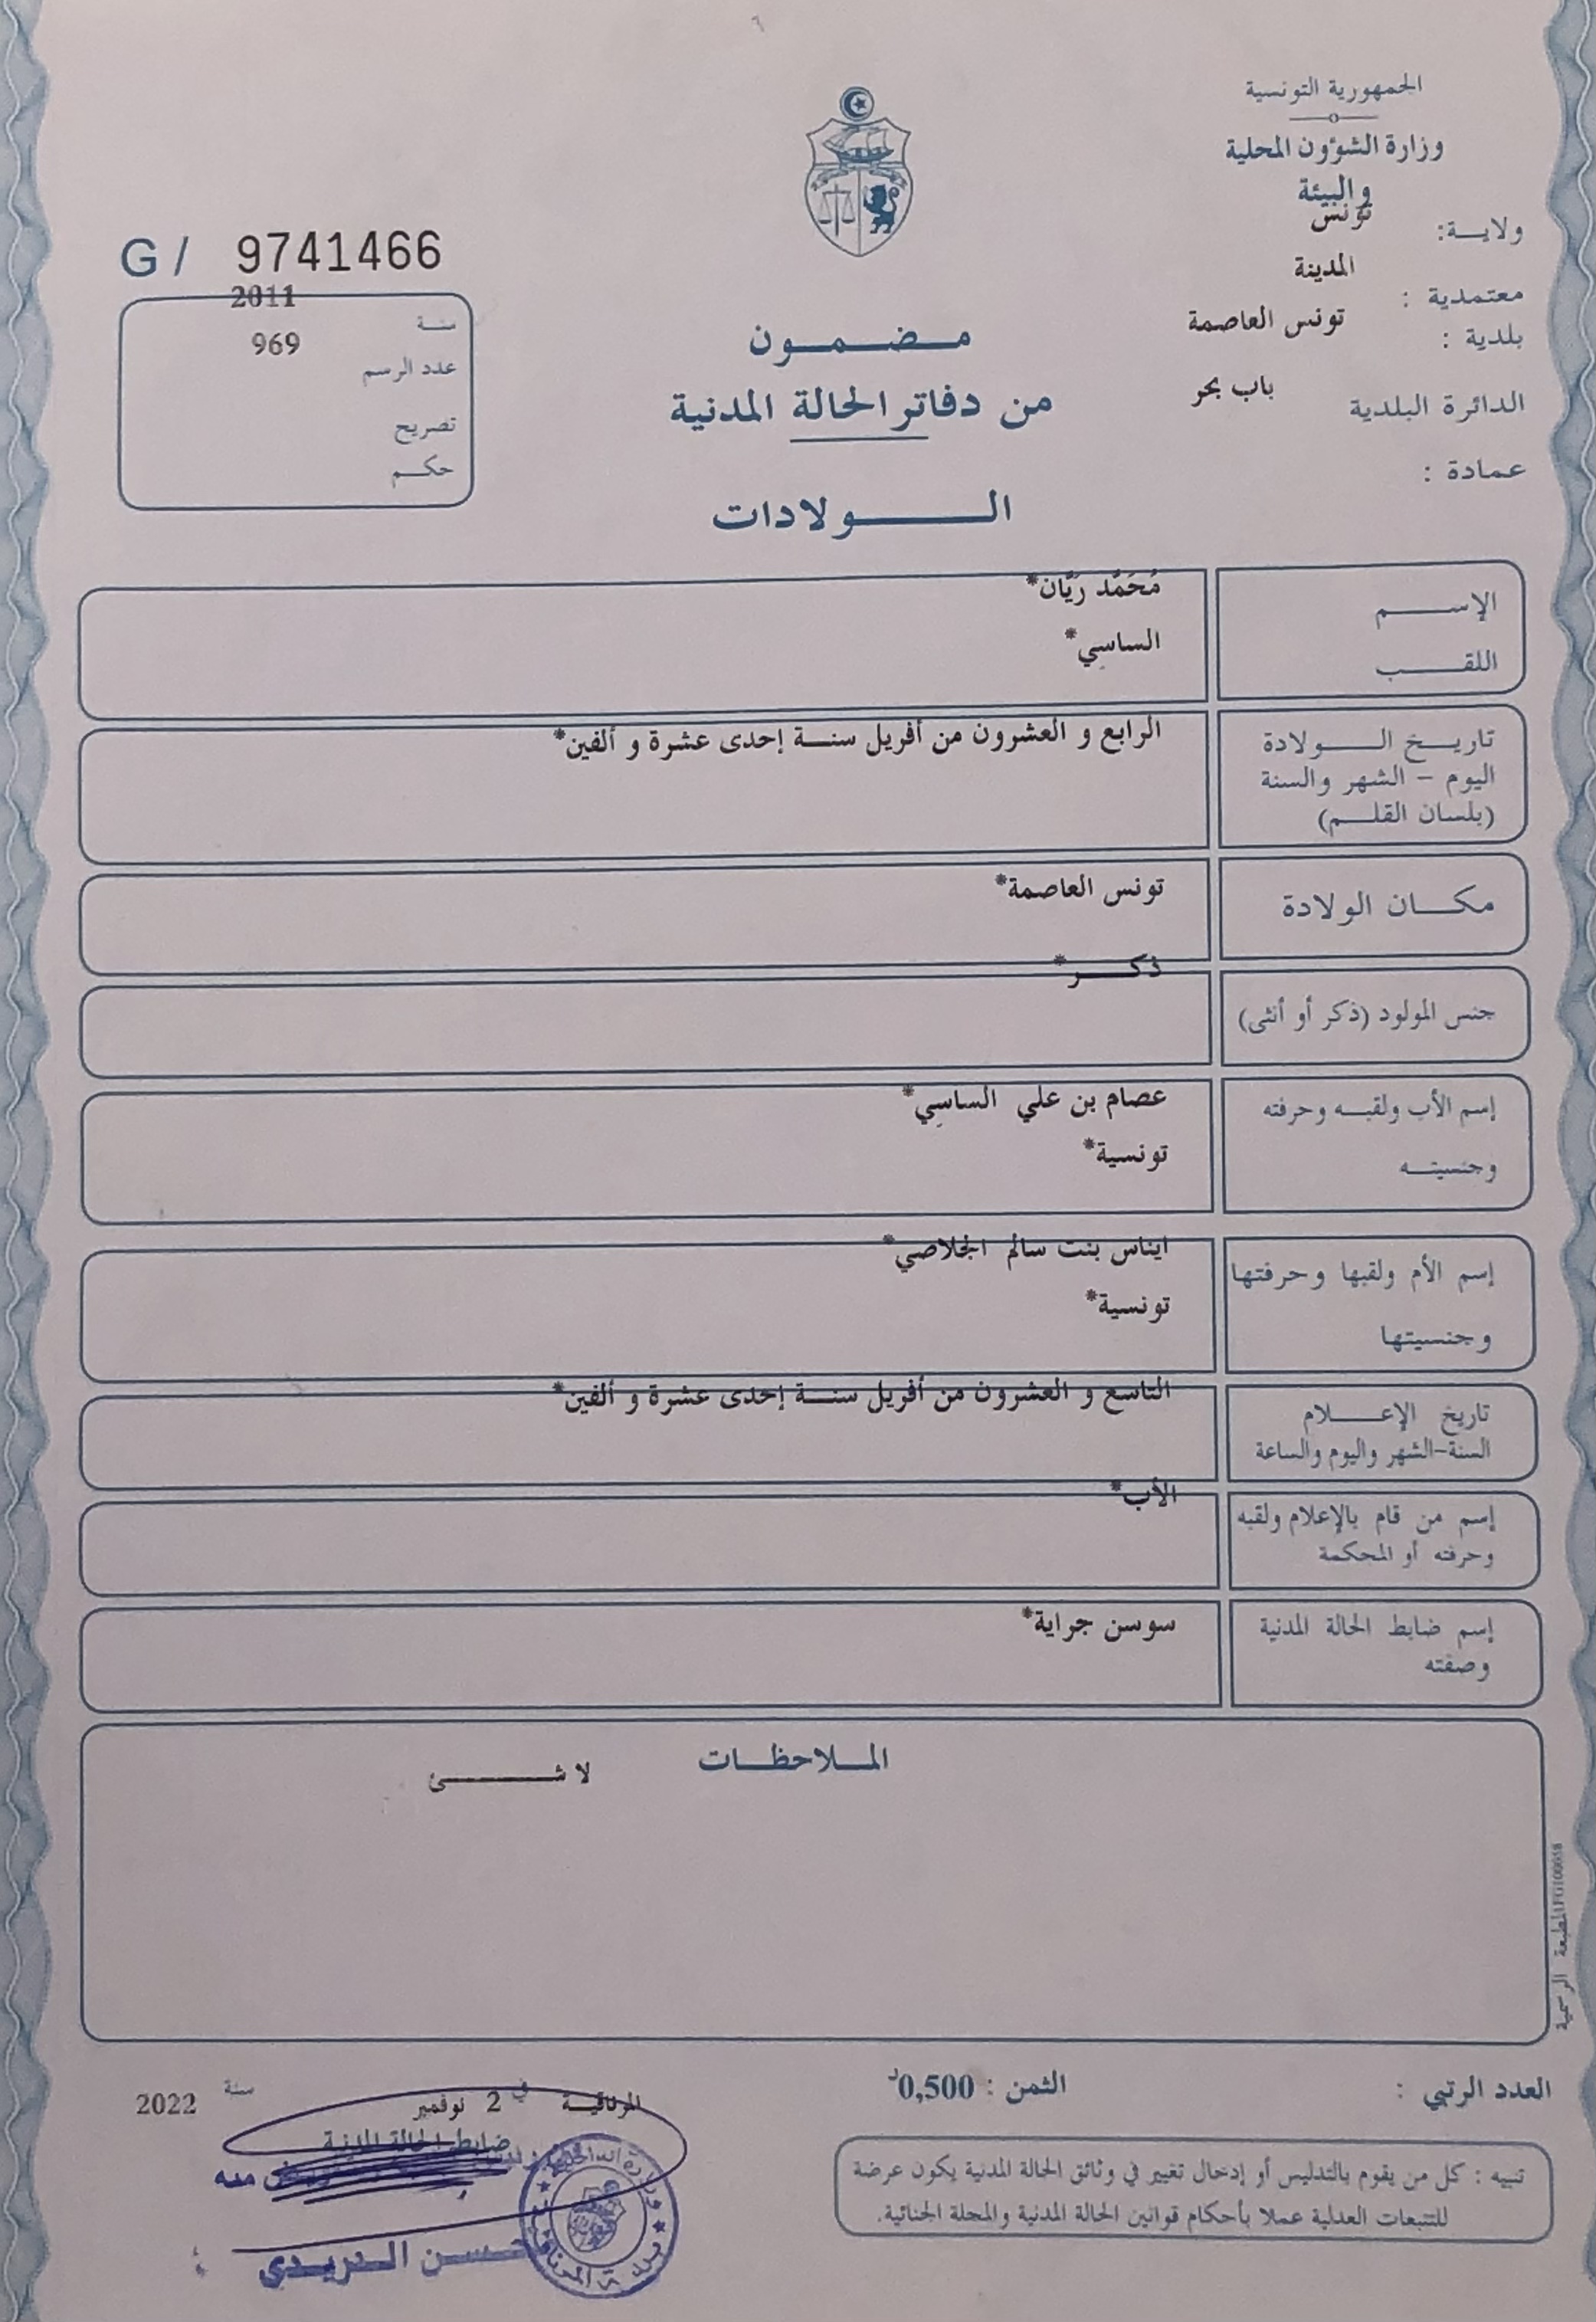 الجمهورية التونسية
وزارة الشؤون المحلية
والبيئة
ولايـــة: تونس
معتمدية : المدينة
بلدية : تونس العاصمة
الدائرة البلدية باب بحر
عمادة :
G/ 9741466
سنـة 2011
عدد الرسم 969
تصريح
حكـــم
مـــضـــمـــون
من دفاتر الحالة المدنية
الـــــولادات
الإســـــم مُحَمَّد رَيَّان*
اللقـــــب الساسي*
تاريـــخ الـــــولادة الرابع و العشرون من أفريل سنـــة إحدى عشرة و ألفين*
اليوم – الشهر والسنة
(بلسان القلـــم)
مكـــان الولادة تونس العاصمة*
جنس المولود (ذكر أو أنثى) ذكـــر*
إسم الأب ولقبـــه وحرفته عصام بن علي الساسي*
وجنسيتـــه تونسية*
إسم الأم ولقبها وحرفتها ايناس بنت سالم الجلاصي*
وجنسيتها تونسية*
تاريخ الإعـــــلام التاسع و العشرون من أفريل سنـــة إحدى عشرة و ألفين*
السنة-الشهر واليوم والساعة
إسم من قام بالإعلام ولقبه الأب*
وحرفته أو المحكمة
إسم ضابط الحالة المدنية سوسن جراية*
وصفته
المـــلاحظـــات
لا شـــــئ
المطبعة الرسمية
العدد الرتبي :
الثمن : 0,500د
المرناقيـــة في 2 نوفمبر سنة 2022
ضابط الحالة المدنية
حسن الدريدي
تنبيه : كل من يقوم بالتدليس أو إدخال تغيير في وثائق الحالة المدنية يكون عرضة
للتتبعات العدلية عملا بأحكام قوانين الحالة المدنية والمجلة الجنائية.